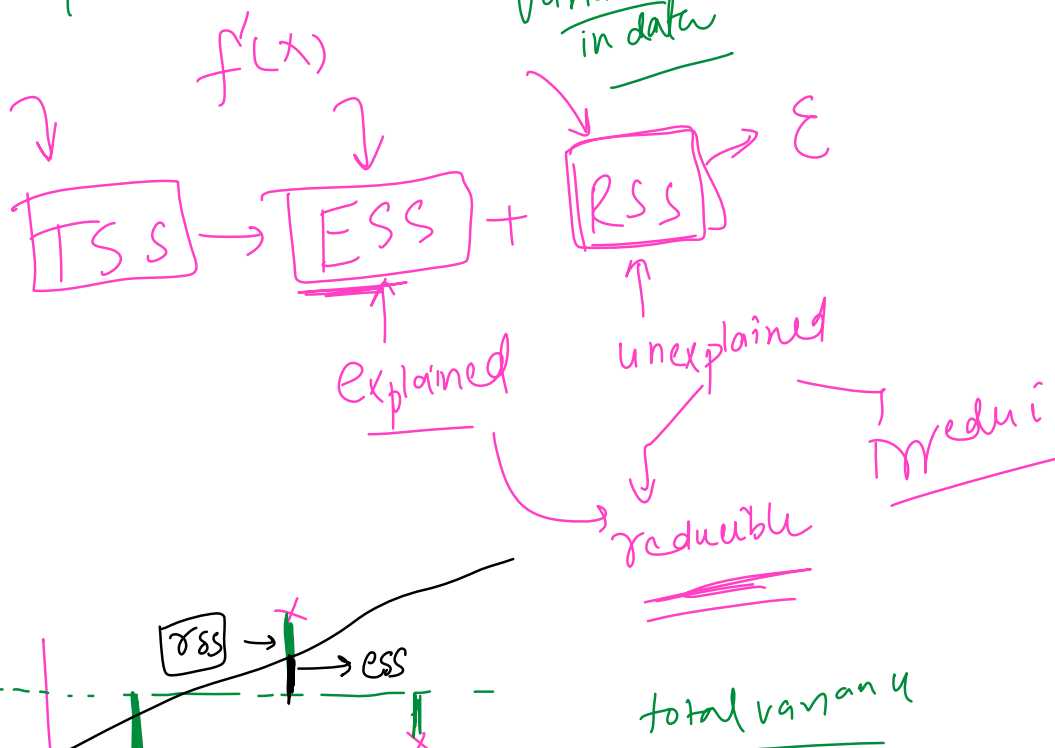 in data
f'(x)
TSS → ESS + RSS → ε
explained
unexplained
reducible
rss → → ess
total